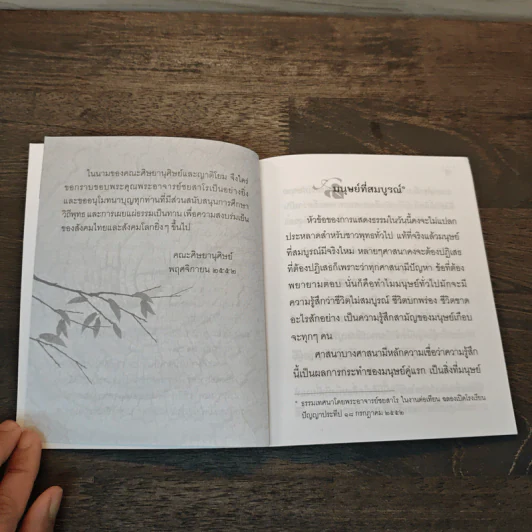 ในนามของคณะศิษยานุศิษย์และญาติโยม จึงใคร่
ขอกราบขอบพระคุณพระอาจารย์ชยสาโรเป็นอย่างยิ่ง
และขออนุโมทนาบุญทุกท่านที่มีส่วนสนับสนุนการศึกษา
วิถีพุทธ และการเผยแผ่ธรรมเป็นทาน เพื่อความสงบร่มเย็น
ของสังคมไทยและสังคมโลกยิ่งๆ ขึ้นไป
คณะศิษยานุศิษย์
พฤศจิกายน ๒๕๕๒
มนุษย์ที่สมบูรณ์*
หัวข้อของการแสดงธรรมในวันนี้คงจะไม่แปลก
ประหลาดสำหรับชาวพุทธทั่วไป แต่ที่จริงแล้วมนุษย์
ที่สมบูรณ์มีจริงไหม หลายๆศาสนาคงจะต้องปฏิเสธ
ที่ต้องปฏิเสธก็เพราะว่าทุกศาสนามีปัญหา ข้อที่ต้อง
พยายามตอบ นั่นก็คือทำไมมนุษย์ทั่วไปมักจะมี
ความรู้สึกว่าชีวิตไม่สมบูรณ์ ชีวิตบกพร่อง ชีวิตขาด
อะไรสักอย่าง เป็นความรู้สึกสามัญของมนุษย์เกือบ
จะทุกๆ คน
ศาสนาบางศาสนามีหลักความเชื่อว่าความรู้สึก
นี้เป็นผลการกระทำของมนุษย์คู่แรก เป็นสิ่งที่มนุษย์
* ธรรมเทศนาโดยพระอาจารย์ชยสาโร ในงานต่อเทียน ฉลองเปิดโรงเรียน
ปัญญาประทีป ๑๘ กรกฎาคม ๒๕๕๒